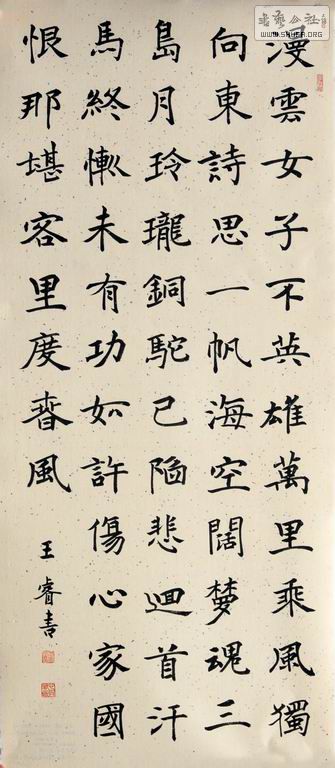 漫雲女子不英雄萬里乘風獨
向東詩思一帆海空闊夢魂三
島月玲瓏銅駝已陷悲迴首汗
馬終慚未有功如許傷心家國
恨那堪客里度春風
王睿書
书艺公社
WWW.SHUFA.ORG